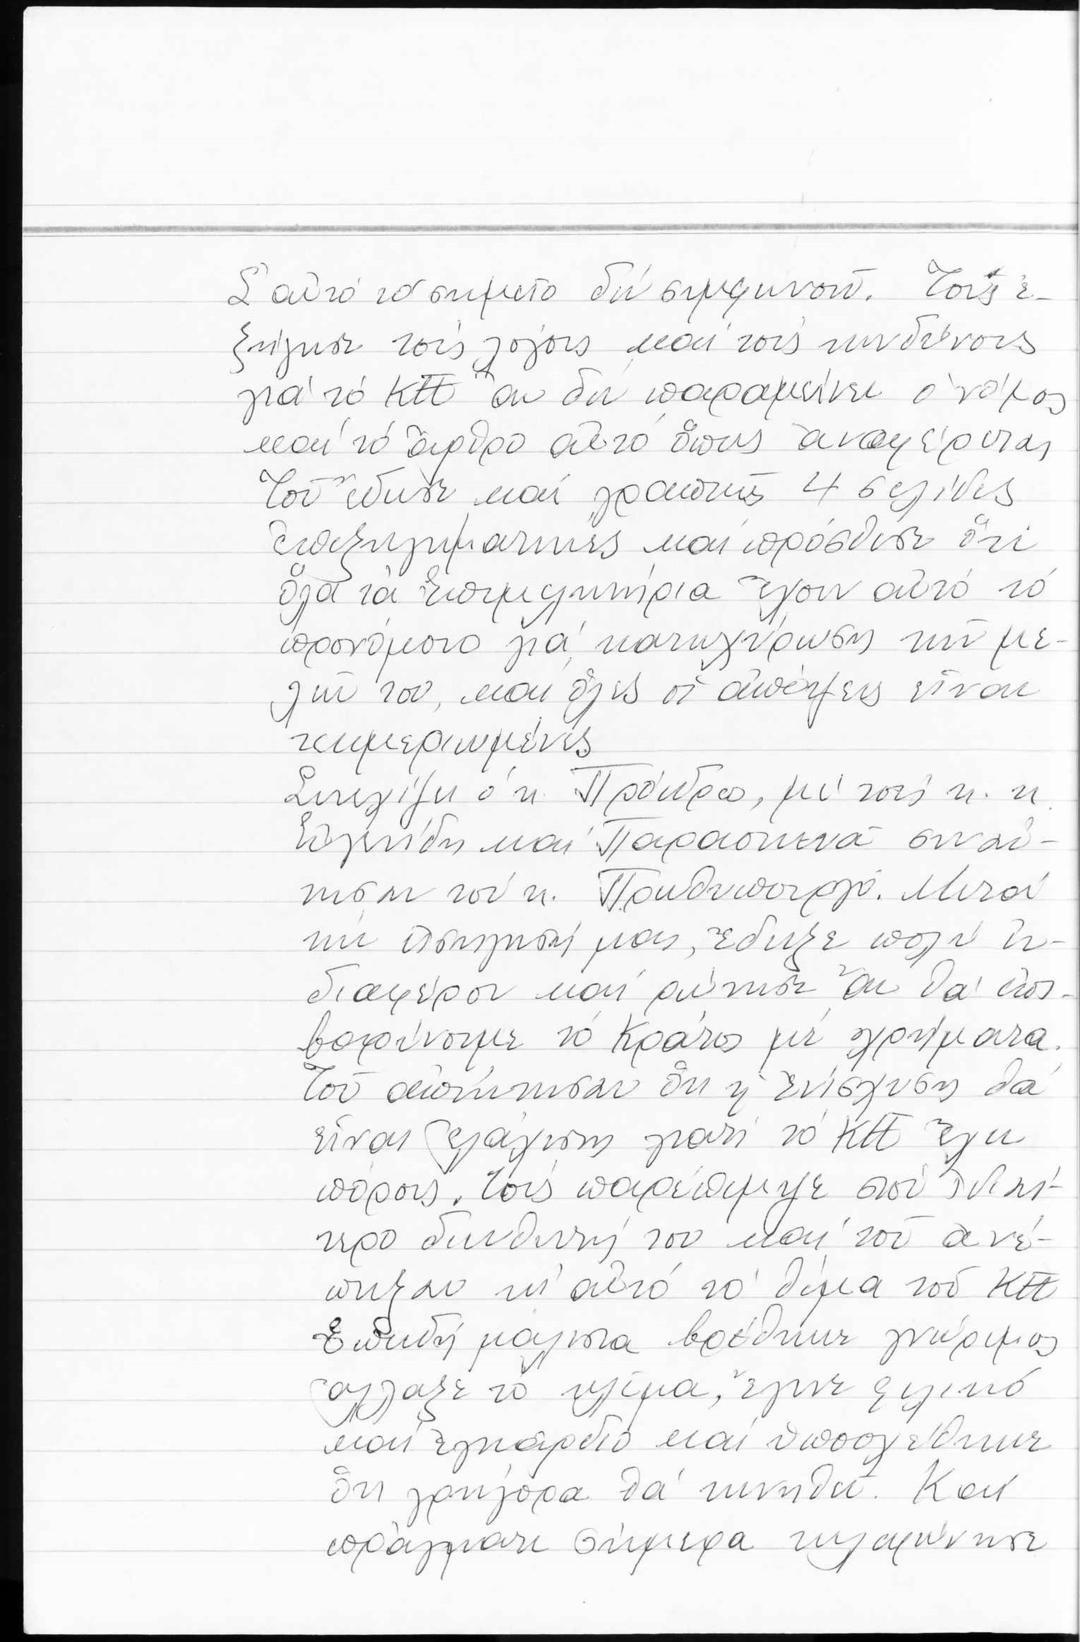 Σ' αὐτό τό σημεῖο δέν συμφωνοῦν. Τούς ἐ-
ξήγησε τούς λόγους καί τούς κινδύνους
γιά τό ΚΠ ἄν δέν παραμείνει ὁ νόμος
καί τό ἄρθρο αὐτό ὅπως ἀναφέρεται
Τοῦ ἔδωσε καί γραπτῶς 4 σελίδες
ἐπεξηγηματικές καί πρόσθεσε ὅτι
ὅλα τά Ἐπιμελητήρια ἔχουν αὐτό τό
προνόμοιο γιά κατοχύρωση τῶν με-
λῶν του, καί ὅλες οἱ ἀπόψεις εἶναι
τεκμεριωμένες
Συνεχίζει ὁ κ. Πρόεδρος, μέ τούς κ. κ.
Εὐγενίδη καί Παρασκευᾶ συναν-
τησαν τόν κ. Πρωθυπουργό. Μετά
τήν εἰσήγησή μας, ἔδειξε πολύ ἐν-
διαφέρον καί ρώτησε ἄν θά ἐπι-
βαρύνουμε τό Κράτος μέ χρήματα.
Τοῦ ἀπάντησαν ὅτι ἡ ἐνίσχυση θά
εἶναι ἐλάχιστη γιατί τό ΚΠ ἔχει
πόρους. Τούς παρέπεμψε στόν ἰδιαί-
τερο διευθυντή του καί τοῦ ἀνέ-
πτυξαν κι' αὐτό τό θέμα τοῦ ΚΠ
Ἐπειδή μάλιστα βρέθηκε γνώριμος
ἄλλαξε τό κλίμα, ἔγινε φιλικό
καί ἐγκάρδιο καί ὑποσχέθηκε
ὅτι γρήγορα θά κινηθεῖ. Καί
πράγματι σήμερα τηλεφώνησε